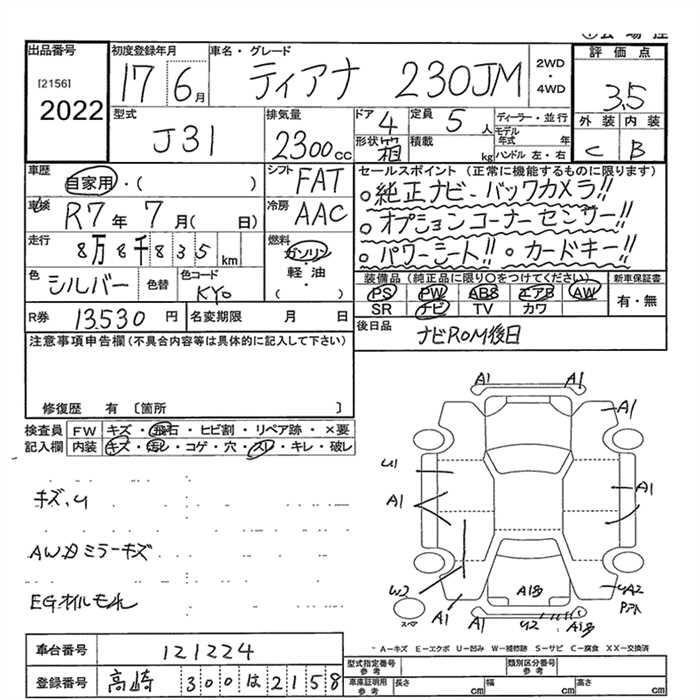 出品番号 初度登録年月 車名・グレード 評価点
[2156] 2022 17 6月 ティアナ 230JM 2WD・4WD 3.5
型式 J31 排気量 2300cc ドア 4 定員 5人 ディーラー・並行 外装 内装
形状 箱 積載 kg モデル年式 年 ハンドル 左・右 C B
車歴 自家用・( ) シフト FAT セールスポイント (正常に機能するものに限ります)
。純正ナビ-バックカメラ!!
車検 R7年 7月( 日) 冷房 AAC 。オプションコーナーセンサー!!
走行 8万8千835km 燃料 ガソリン・軽油・( ) 。パワーシート!! 。カードキー!!
色 シルバー 色替 色コード KY0 装備品(純正品に限り○をつけてください) 新車保証書
PS PW ABS エアB AW 有・無
SR ナビ TV カワ
R券 13.530円 名変期限 月 日 後日品 ナビROM後日
注意事項申告欄(不具合内容等は具体的に記入して下さい)
修復歴 有 〔箇所 〕
検査員 FW キズ・飛石・ヒビ割・リペア跡・×要
記入欄 内装 キズ・汚レ・コゲ・穴・スレ・キレ・破レ
A1 A1
A1
U1
A1 A1
キズ、U
AWカミラーキズ
EGオイルモれ
W2 A1 A1多 UA2
スペア U2 A1多
車台番号 121224
A-キズ E-エクボ U-凹み W-補修跡 S-サビ C-腐食 XX-交換済
登録番号 高崎 300 は 2158
型式指定番号 参考 類別区分番号 参考
車庫証明用 参考 長さ cm 幅 cm 高さ cm